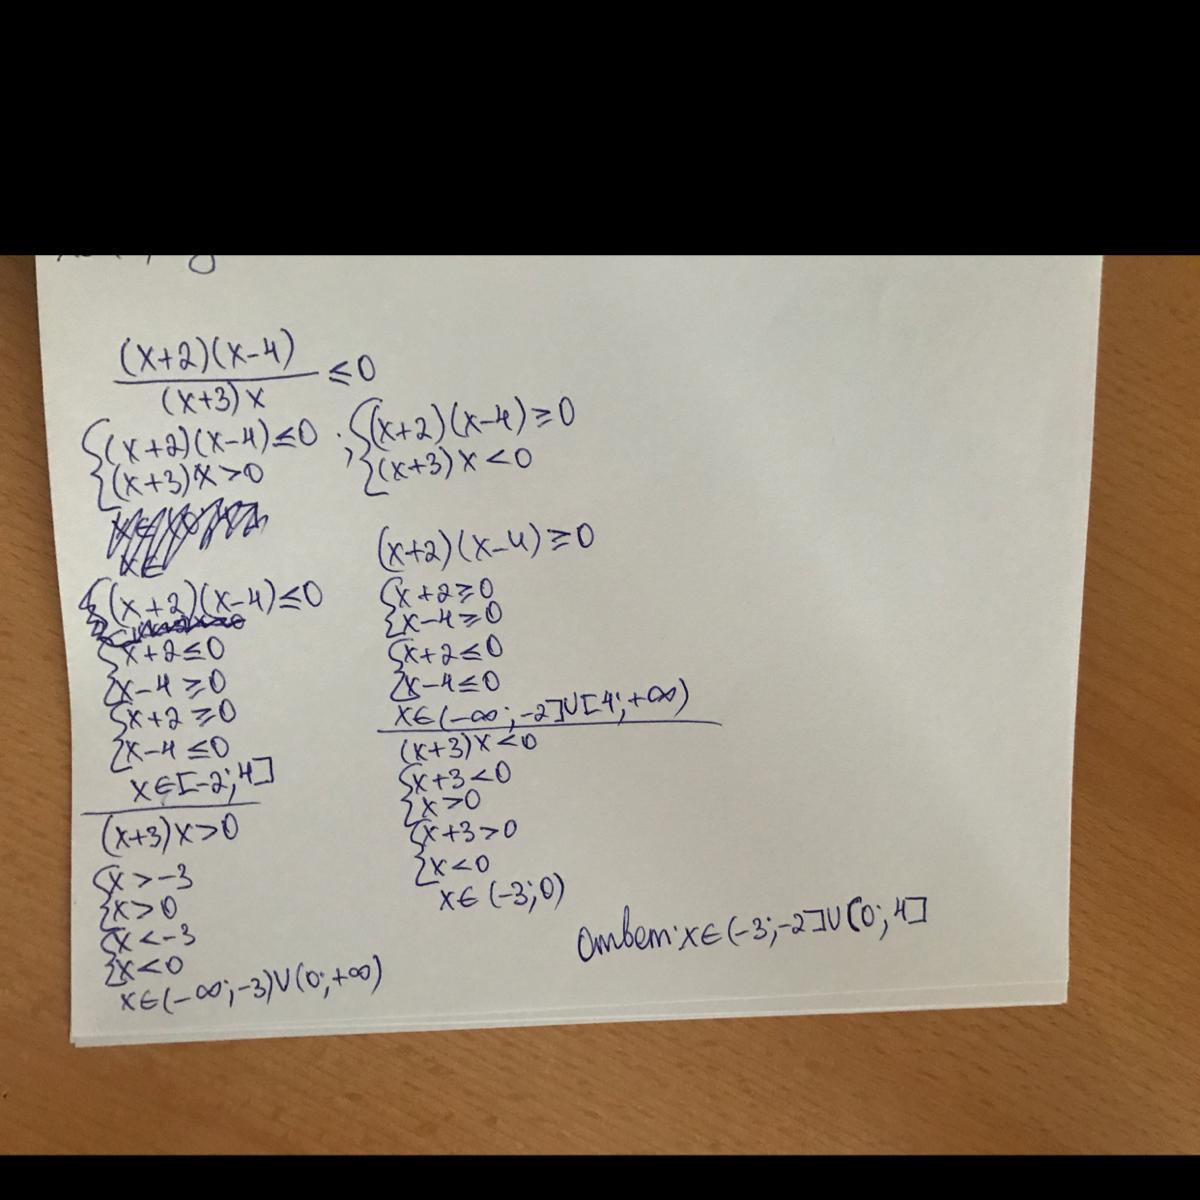 (x+2)(x-4)
(x+3)x
≤0
{(x+2)(x-4)≤0
{(x+3)x>0
;
{(x+2)(x-4)≥0
{(x+3)x<0
x∈
{(x+2)(x-4)≤0
{x+2≤0
{x-4≥0
{x+2≥0
{x-4≤0
x∈[-2;4]
(x+3)x>0
{x>-3
{x>0
{x<-3
{x<0
x∈(-∞;-3)∪(0;+∞)
(x+2)(x-4)≥0
{x+2≥0
{x-4≥0
{x+2≤0
{x-4≤0
x∈(-∞;-2]∪[4;+∞)
(x+3)x<0
{x+3<0
{x>0
{x+3>0
{x<0
x∈(-3;0)
Ответ: x∈(-3;-2]∪(0;4]